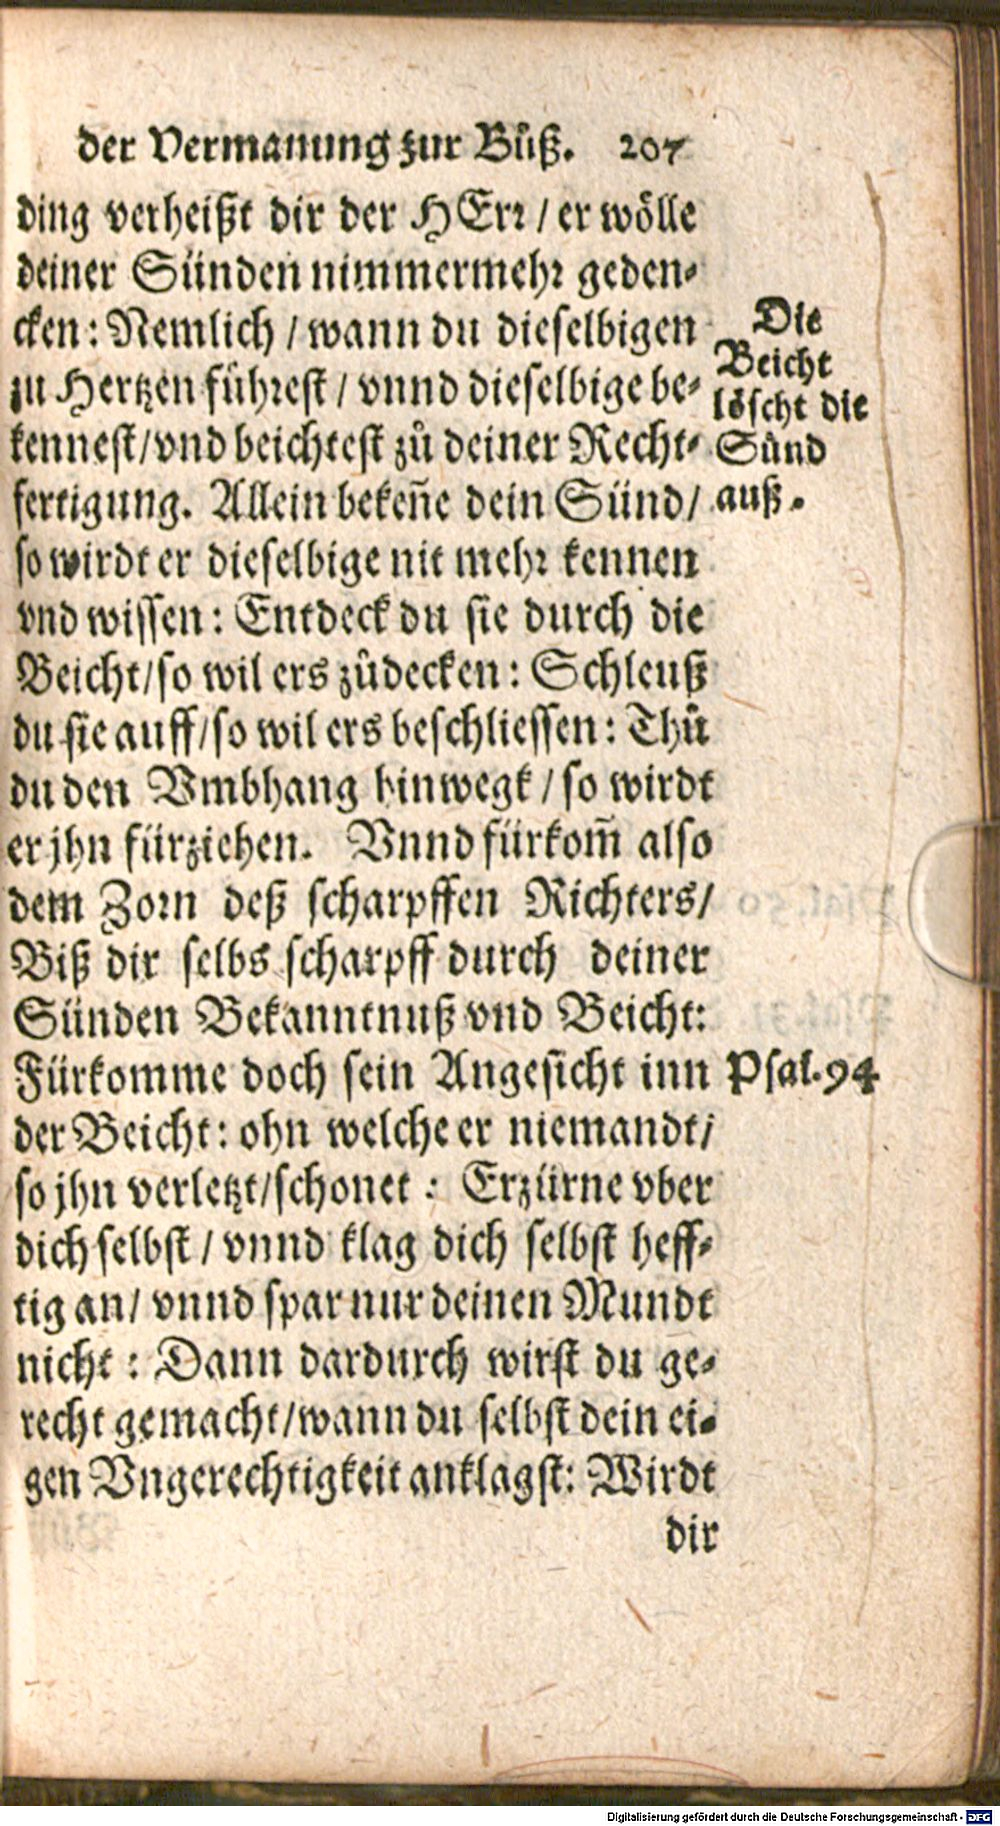 der Vermanung zur Bůß. 207
ding verheißt dir der HErr / er wölle
deiner Sünden nimmermehr geden-
cken: Nemlich / wann du dieselbigen
zu Hertzen führest / vnnd dieselbige be-
kennest/vnd beichtest zů deiner Recht-
fertigung. Allein bekeñe dein Sünd/
so wirdt er dieselbige nit mehr kennen
vnd wissen: Entdeck du sie durch die
Beicht/so wil ers zůdecken: Schleuß
du sie auff/so wil ers beschliessen: Thů
du den Vmbhang hinwegk / so wirdt
er jhn fürziehen. Vnnd fürkom̃ also
dem Zorn deß scharpffen Richters/
Biß dir selbs scharpff durch deiner
Sünden Bekanntnuß vnd Beicht:
Fürkomme doch sein Angesicht inn
der Beicht: ohn welche er niemandt/
so jhn verletzt/schonet: Erzürne vber
dich selbst / vnnd klag dich selbst heff-
tig an/ vnnd spar nur deinen Mundt
nicht: Dann dardurch wirst du ge-
recht gemacht/wann du selbst dein ei-
gen Vngerechtigkeit anklagst: Wirdt
dir
Die
Beicht
löscht die
Sünd
auß.
Psal.94
Digitalisierung gefördert durch die Deutsche Forschungsgemeinschaft - DFG